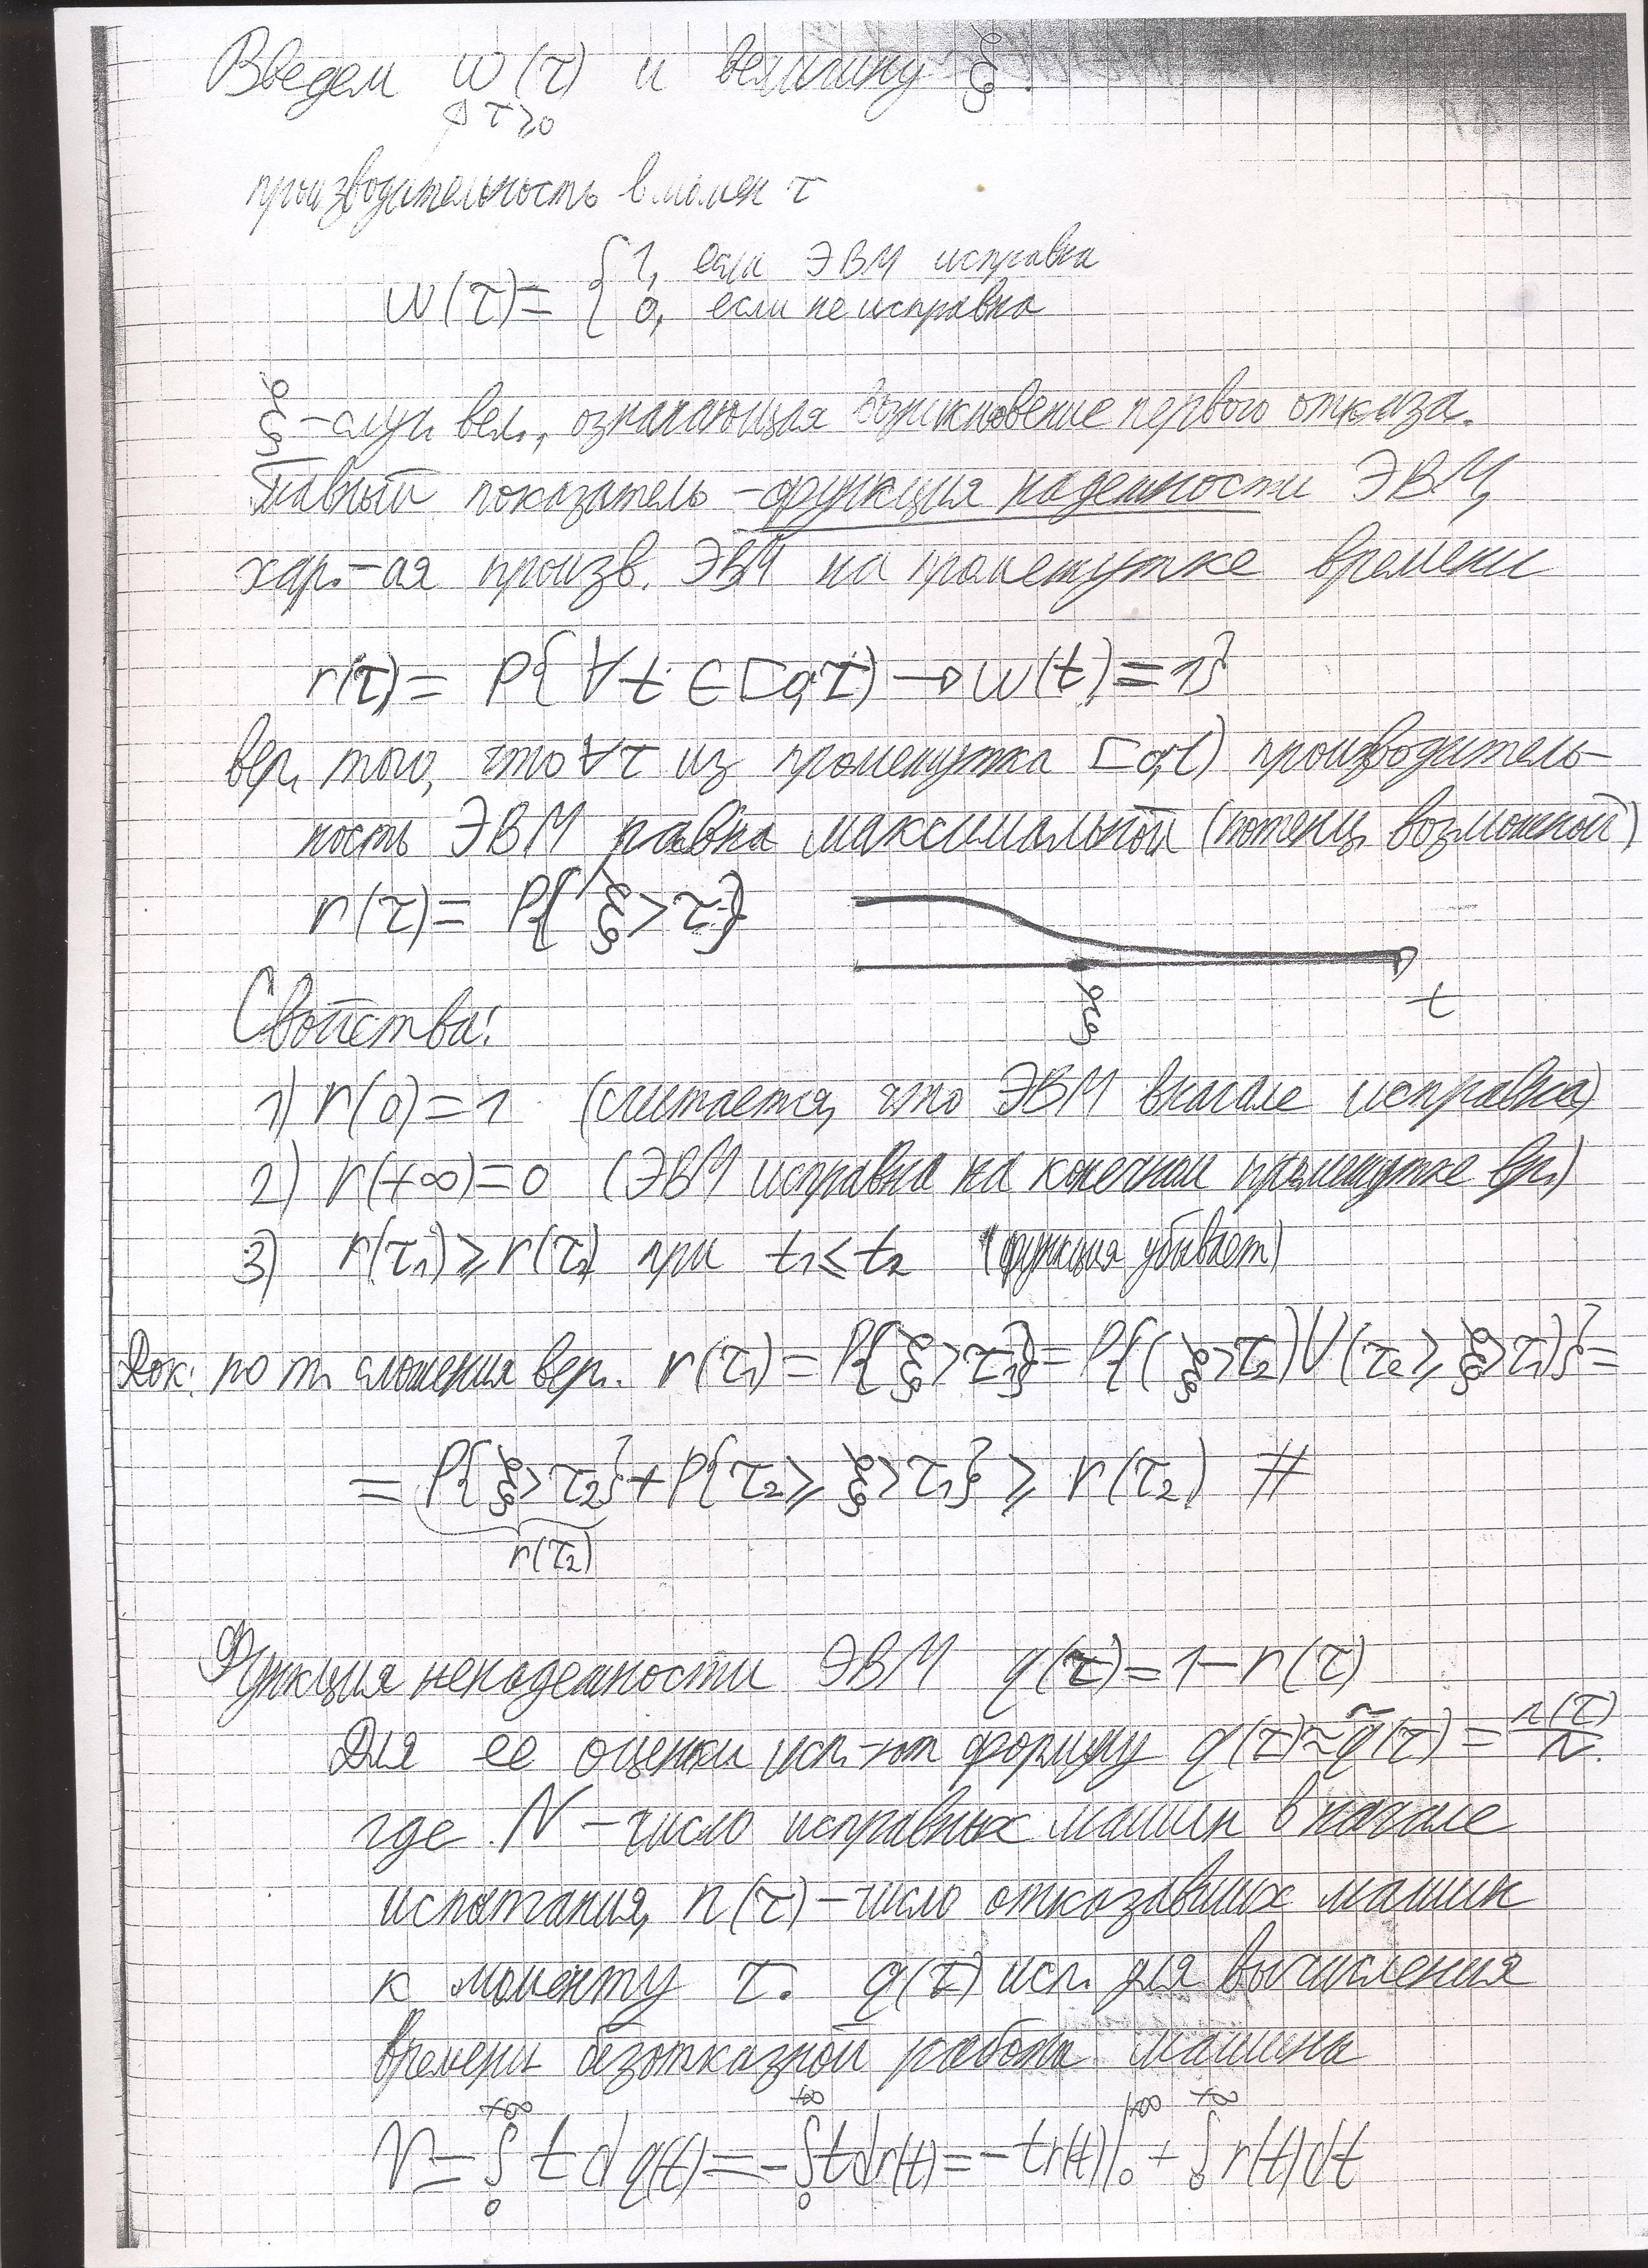 Введем w(τ) и величину ξ.
τ≥0
производительность в момен τ
w(τ) = { 1, если ЭВМ исправна
0, если неисправна
ξ – случ. вел., означающая возникновение первого отказа.
Главный показатель – функция надежности ЭВМ,
хар.-ая произв. ЭВМ на промежутке времени
r(τ) = P{∀t ∈ [0,τ) → w(t) = 1}
вер. того, что ∀τ из промежутка [0,t) производитель-
ность ЭВМ равна максимальной (потенц. возможной)
r(τ) = P{ξ > τ}
ξ t
Свойства:
1) r(0) = 1 (считается, что ЭВМ вначале исправна)
2) r(+∞) = 0 (ЭВМ исправна на конечном промежутке вр.)
3) r(τ₁) ≥ r(τ₂) при t₁ ≤ t₂ (функция убывает)
Док: по т. сложения вер. r(τ₁) = P{ξ > τ₁} = P{(ξ > τ₂) ∪ (τ₂ ≥ ξ > τ₁)} =
= P{ξ > τ₂} + P{τ₂ ≥ ξ > τ₁} ≥ r(τ₂) #
r(τ₂)
Функция ненадежности ЭВМ q(τ) = 1 – r(τ)
Для ее оценки исп-ют формулу q(τ) ≈ q̃(τ) = n(τ)/N
где N – число исправных машин в начале
испытания, n(τ) – число отказавших машин
к моменту τ. q(τ) исп. для вычисления
времени безотказной работы машины
= ∫₀^{+∞} t dq(t) = –∫₀^{+∞} t dr(t) = –t r(t)|₀^{+∞} + ∫₀^{+∞} r(t) dt